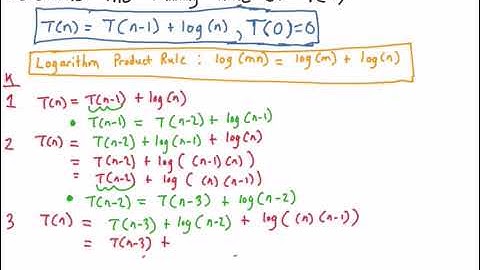 T(n) = T(n-1) + log(n) , T(0)=0
Logarithm Product Rule : log(mn) = log(m) + log(n)
K
1 T(n) = T(n-1) + log(n)
• T(n-1) = T(n-2) + log(n-1)
2 T(n) = T(n-2) + log(n-1) + log(n)
= T(n-2) + log( (n-1)(n) )
= T(n-2) + log( (n)(n-1))
• T(n-2) = T(n-3) + log(n-2)
3 T(n) = T(n-3) + log(n-2) + log( (n)(n-1))
= T(n-3) +